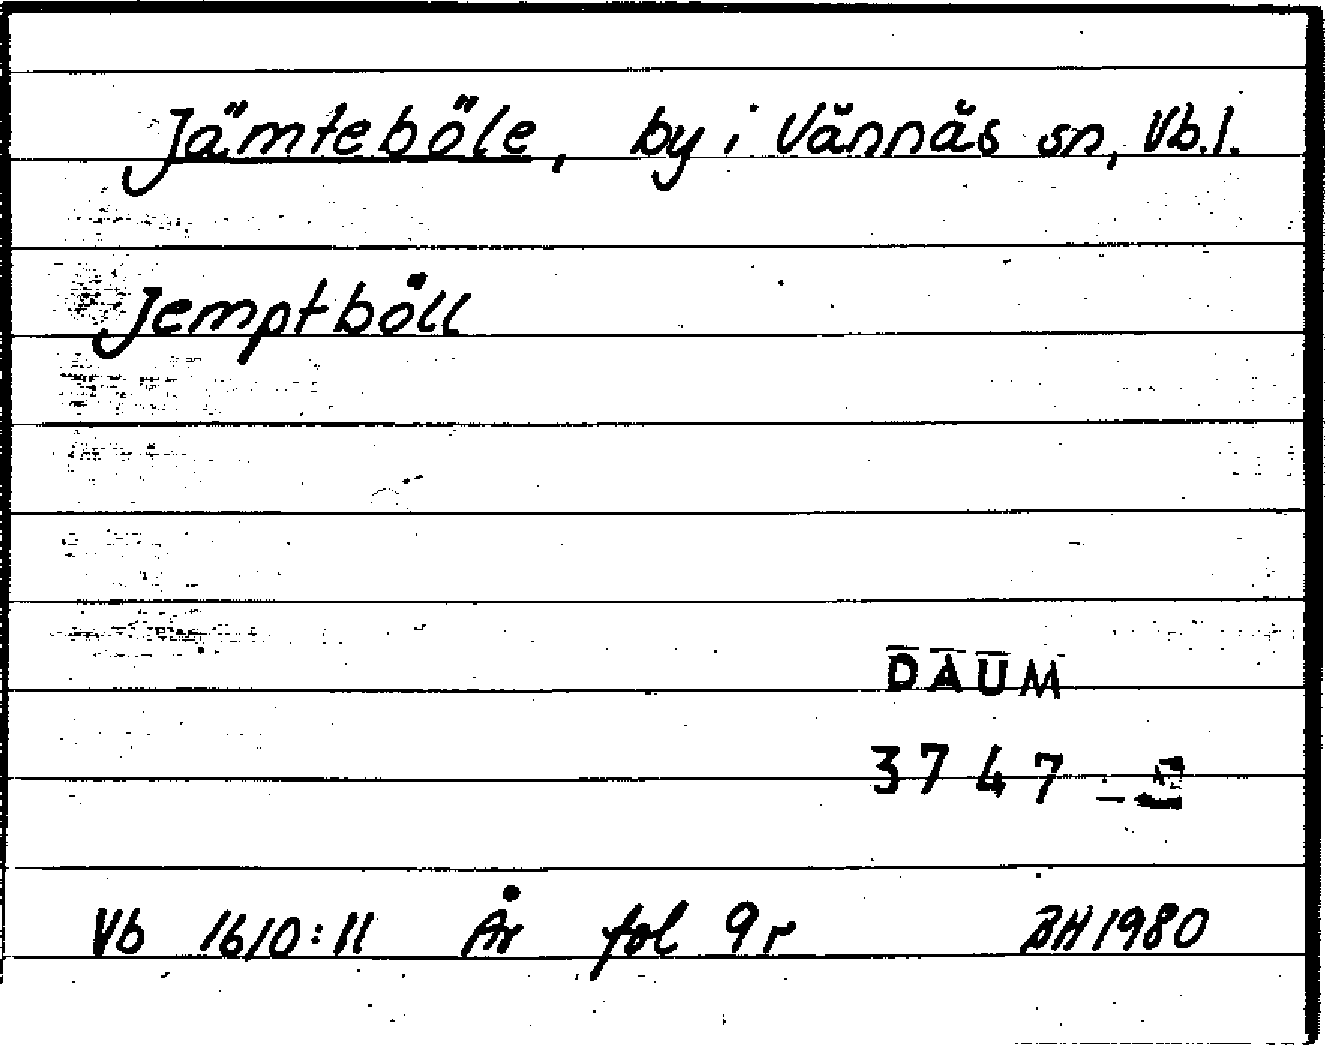 Jämteböle, by i Vännäs sn, Vb.l.
Jemptbåll
DAUM
3747
Vb 1610:11 År fol 9r BH 1980